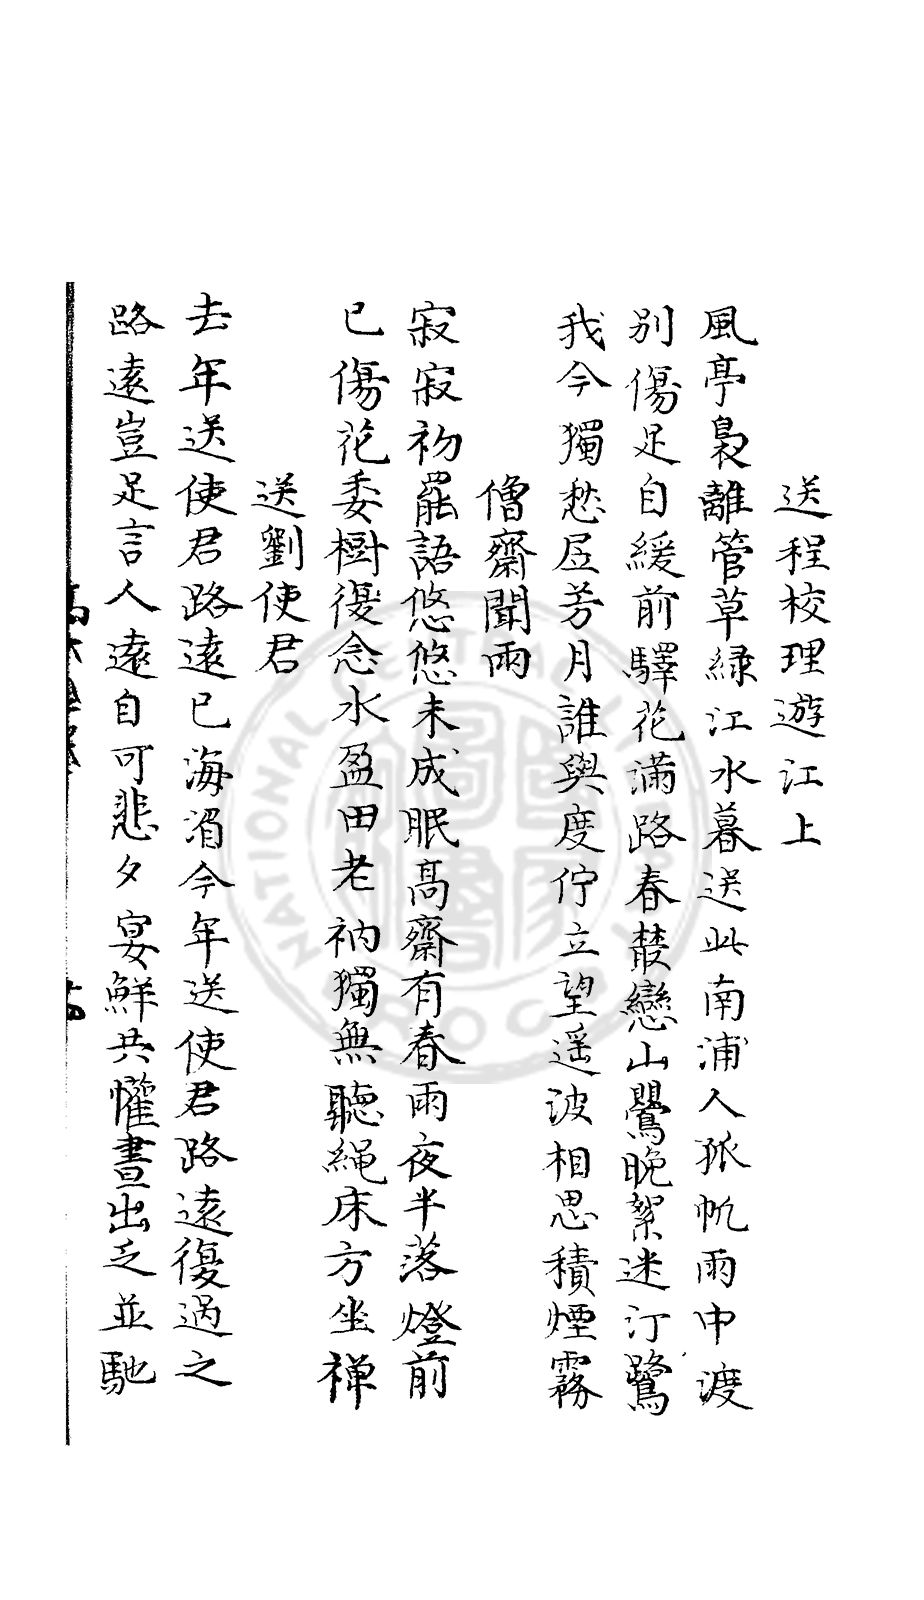 送程校理遊江上
風亭裊離管草緑江水暮送此南浦人孤帆雨中渡
别傷足自緩前驛花滿路春叢戀山鸎晚絮迷汀鷺
我今獨愁居芳月誰與度佇立望遥波相思積煙霧
僧齋聞雨
寂寂初罷語悠悠未成眠髙齋有春雨夜半落燈前
已傷花委樹復念水盈田老衲獨無聽繩床方坐禅
送劉使君
去年送使君路遠已海湄今年送使君路遠復過之
路遠豈足言人遠自可悲夕宴鮮共懽晝出乏並馳
NATIONAL CENTRAL LIBRARY R.O.C.